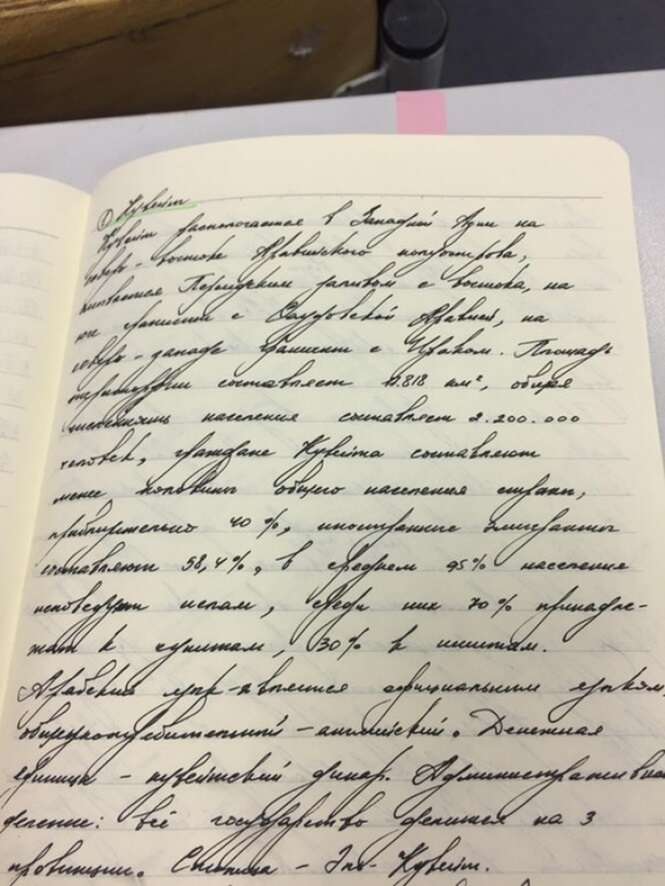 ① Кувейт
Кувейт расположился в Западной Азии на
северо-востоке Аравийского полуострова,
омывается Персидским заливом с востока, на
юге граничит с Саудовской Аравией, на
северо-западе граничит с Ираком. Площадь
территории составляет 17.818 км², общая
численность населения составляет 2.200.000
человек, граждане Кувейта составляют
менее половины общего населения страны,
приблизительно 40%, иностранные эмигранты
составляют 58,4%, в среднем 95% населения
исповедуют ислам, среди них 70% принадле-
жат к суннитам, 30% к шиитам.
Арабский язык является официальным языком,
общеупотребительный - английский. Денежная
единица - кувейтский динар. Административное
деление: всё государство делится на 3
провинции. Столица - Эль-Кувейт.